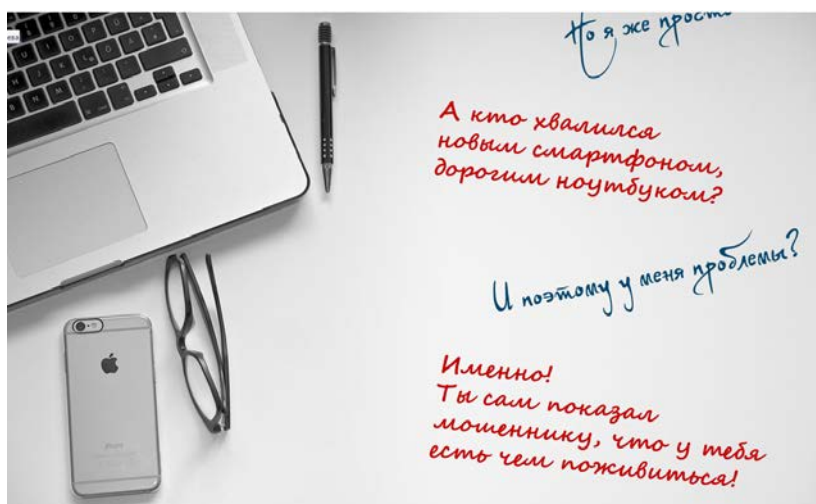 Но я же просто
А кто хвалился
новым смартфоном,
дорогим ноутбуком?
И поэтому у меня проблемы?
Именно!
Ты сам показал
мошеннику, что у тебя
есть чем поживиться!